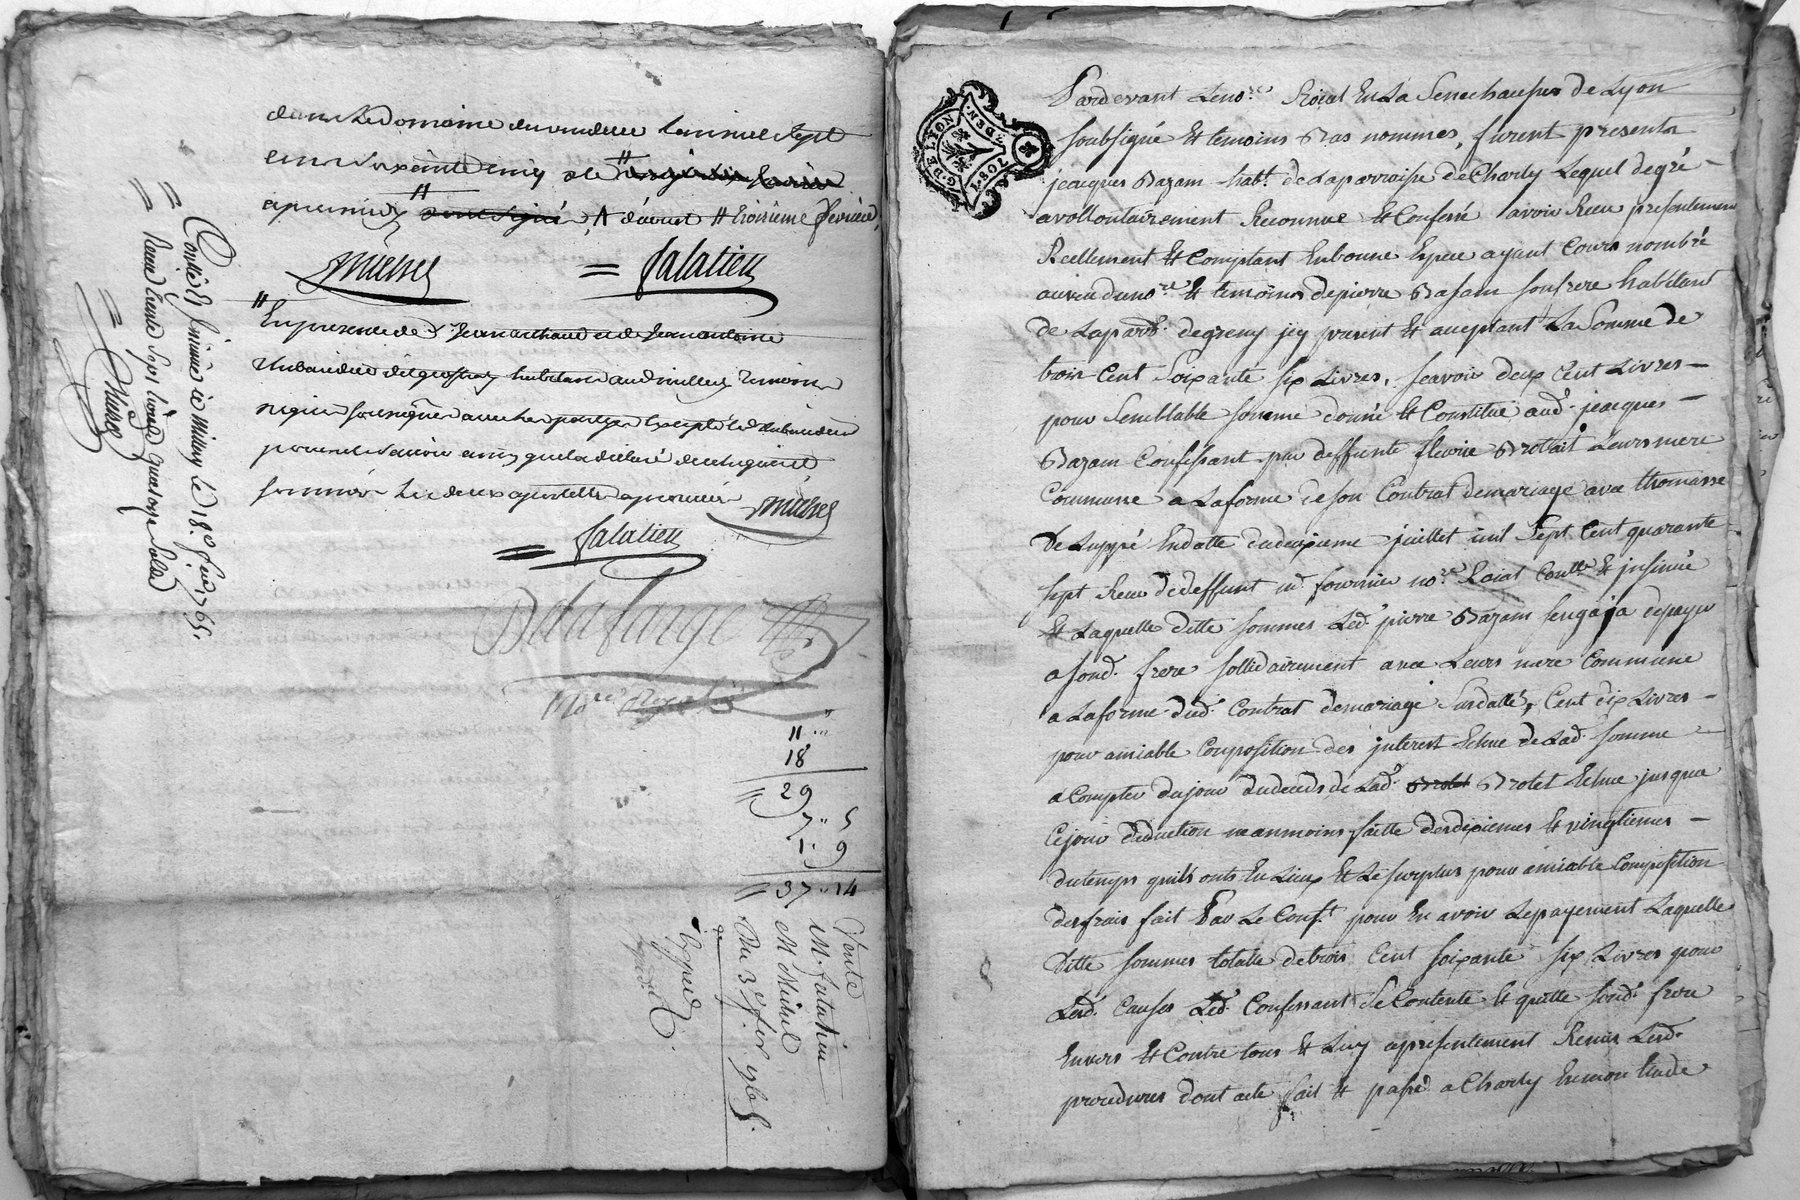 dans le domaine du vendeur l'an mil sept
cens soixante cinq & le
apres midy, A d'aout # troisieme fevrier,
Michel = Salatien
# En presence de Sr Jean
habitans temoins
requis soussignés avec les parties excepté led.
pour ne sçavoir ainsy que la declaré de ce enquis et
sommé Les deux apostilles approuvées Michel
= Salatien
Delafarge
No.re Royal
11 ...
18
29
7 .. 5
1 . 9
37 .. 14
Vente
M. Salatien
M Michel
Du 3e fer 1765.
Expedié
Conllé & Insinué à Millery le 18e fer 1765.
Reçu trente sept livres quatorze sols
G. DE LYON
2. DEN.
Pardevant Le no.re Roial En La Senechaussée de Lyon
soubsigné Et temoins Bas nommes, furent presents
jeacques Bazam hab.t de La parroisse de Charly Lequel de gré
a vollontairement Reconnue Et Confessé avoir Receu presentement
Reellement Et Comptant En bonne Espece ayant Cours nombré
au veu du no.re Et temoins de pierre Basam son frere habitant
de La parr. de grezy jcy present Et aceptant La Somme de
trois Cent Soixante six Livres, scavoir deux Cent Livres
pour Semblable somme donné Et Constitué aud. jeacques
Bazam Confessant par deffunte fleurie Brotet Leurs mere
Commune a La forme de son Contrat de mariage avec thomasse
De Luppé En datte du deuxieme juillet mil Sept Cent quarante
sept Receu de deffunt m.e fournier no.re Roial Conllé Et jnsinué
Et Laquelle ditte sommes Led. pierre Bazam sengaja de payer
a sond. frere sollidairement avec Leurs mere Commune
a La forme dud. Contrat de mariage Susdatté, Cent dix Livres
pour amiable Composition des jnterest Echue de Lad. somme
a Compter du jour du deceds de Lad. Brotet Echue jusqua
Ce jour deduction neanmoins faitte des dixiemes Et vingtiemes
du temps quils onts Eu Lieux Et Le surplus pour amiable Composition
des frais fait Par Le Conf.t pour En avoir Le payement Laquelle
ditte sommes totalle de trois Cent soixante six Livres pour
Lesd. Causes Led. Confessant Se Contente Et quitte sond. frere
Envers Et Contre tous Et Luy a presentement Remis Lesd.
procedures dont acte fait Et passé a Charly En mon Etude